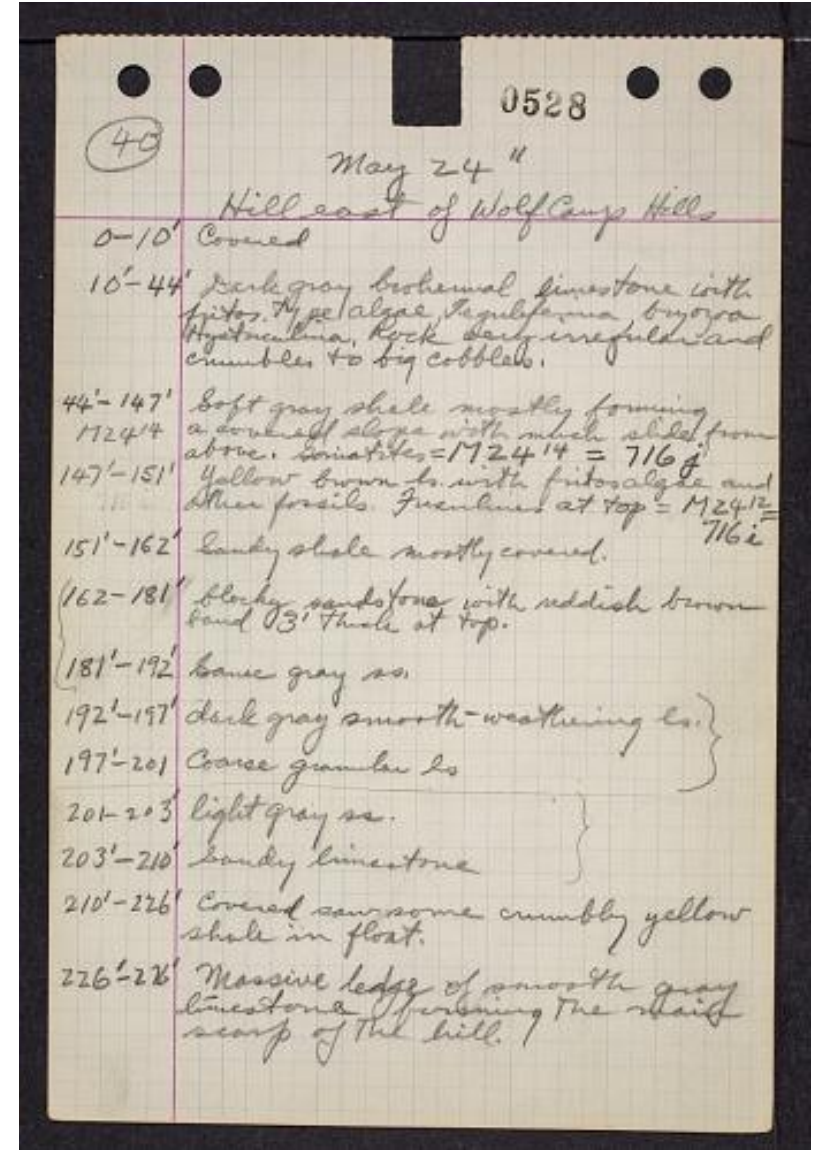 0528
40
May 24"
Hill east of Wolf Camp Hills
0-10' Covered
10'-44' Dark gray biohermal limestone with
fritos type algae, Tegulifernia, bryozoa
Hystriculina. Rock very irregular and
crumbles to big cobbles.
44'-147' Soft gray shale mostly forming
M24¹⁴ a covered slope with much slide from
above. Goniatites = M24¹⁴ = 716j
147'-151' Yellow brown ls. with fritos algae and
other fossils. Fusulines at top = M24¹² =
716i
151'-162' Sandy shale mostly covered.
162-181' blocky sandstone with reddish brown
band 3' thick at top.
181'-192' Same gray ss.
192'-197' dark gray smooth-weathering ls.
197'-201 Coarse granular ls
201-203' light gray ss.
203'-210' Sandy limestone
210'-226' Covered saw some crumbly yellow
shale in float.
226'- Massive ledge of smooth gray
limestone forming the main
scarp of the hill.